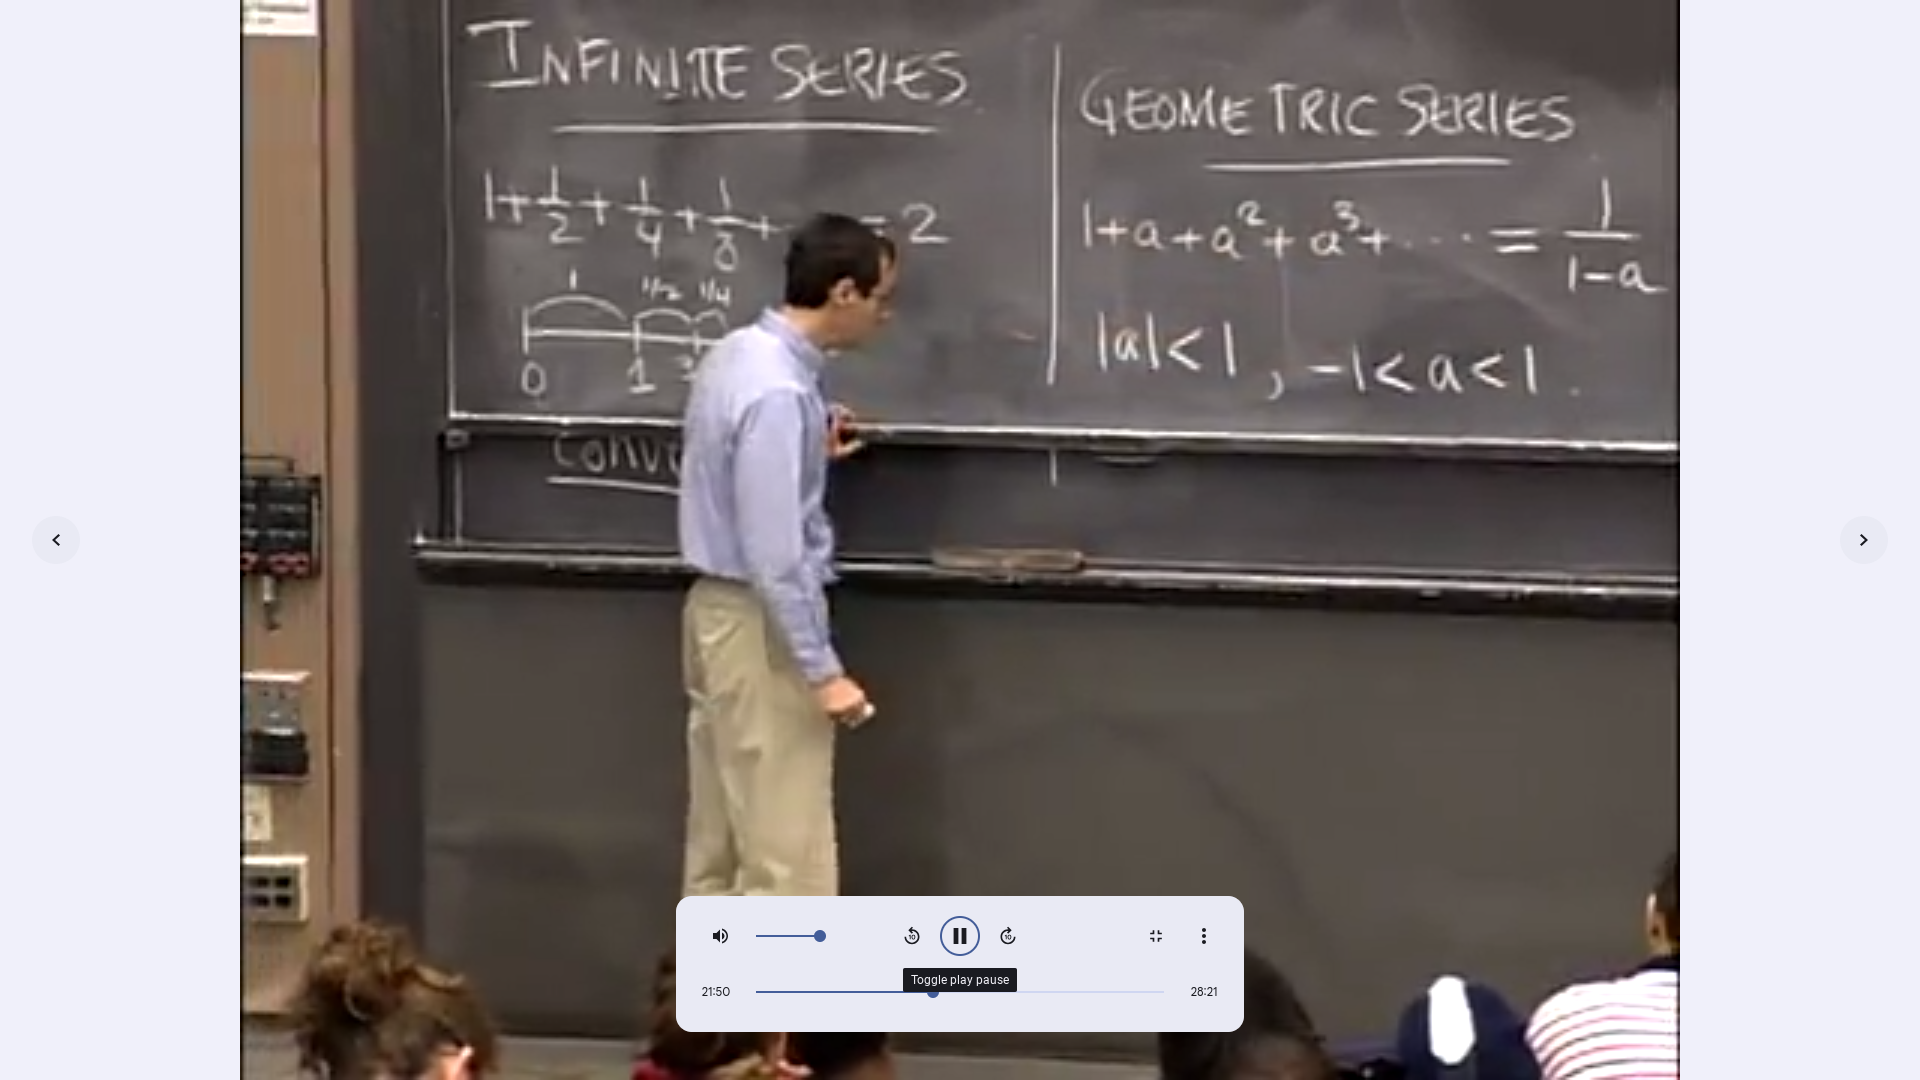 INFINITE SERIES
1 + 1/2 + 1/4 + 1/8 + = 2
1 1/2 1/4
0 1
GEOMETRIC SERIES
1+a+a²+a³+ ··· = 1/(1-a)
|a|<1, -1<a<1.
10 10
Toggle play pause
21:50 28:21